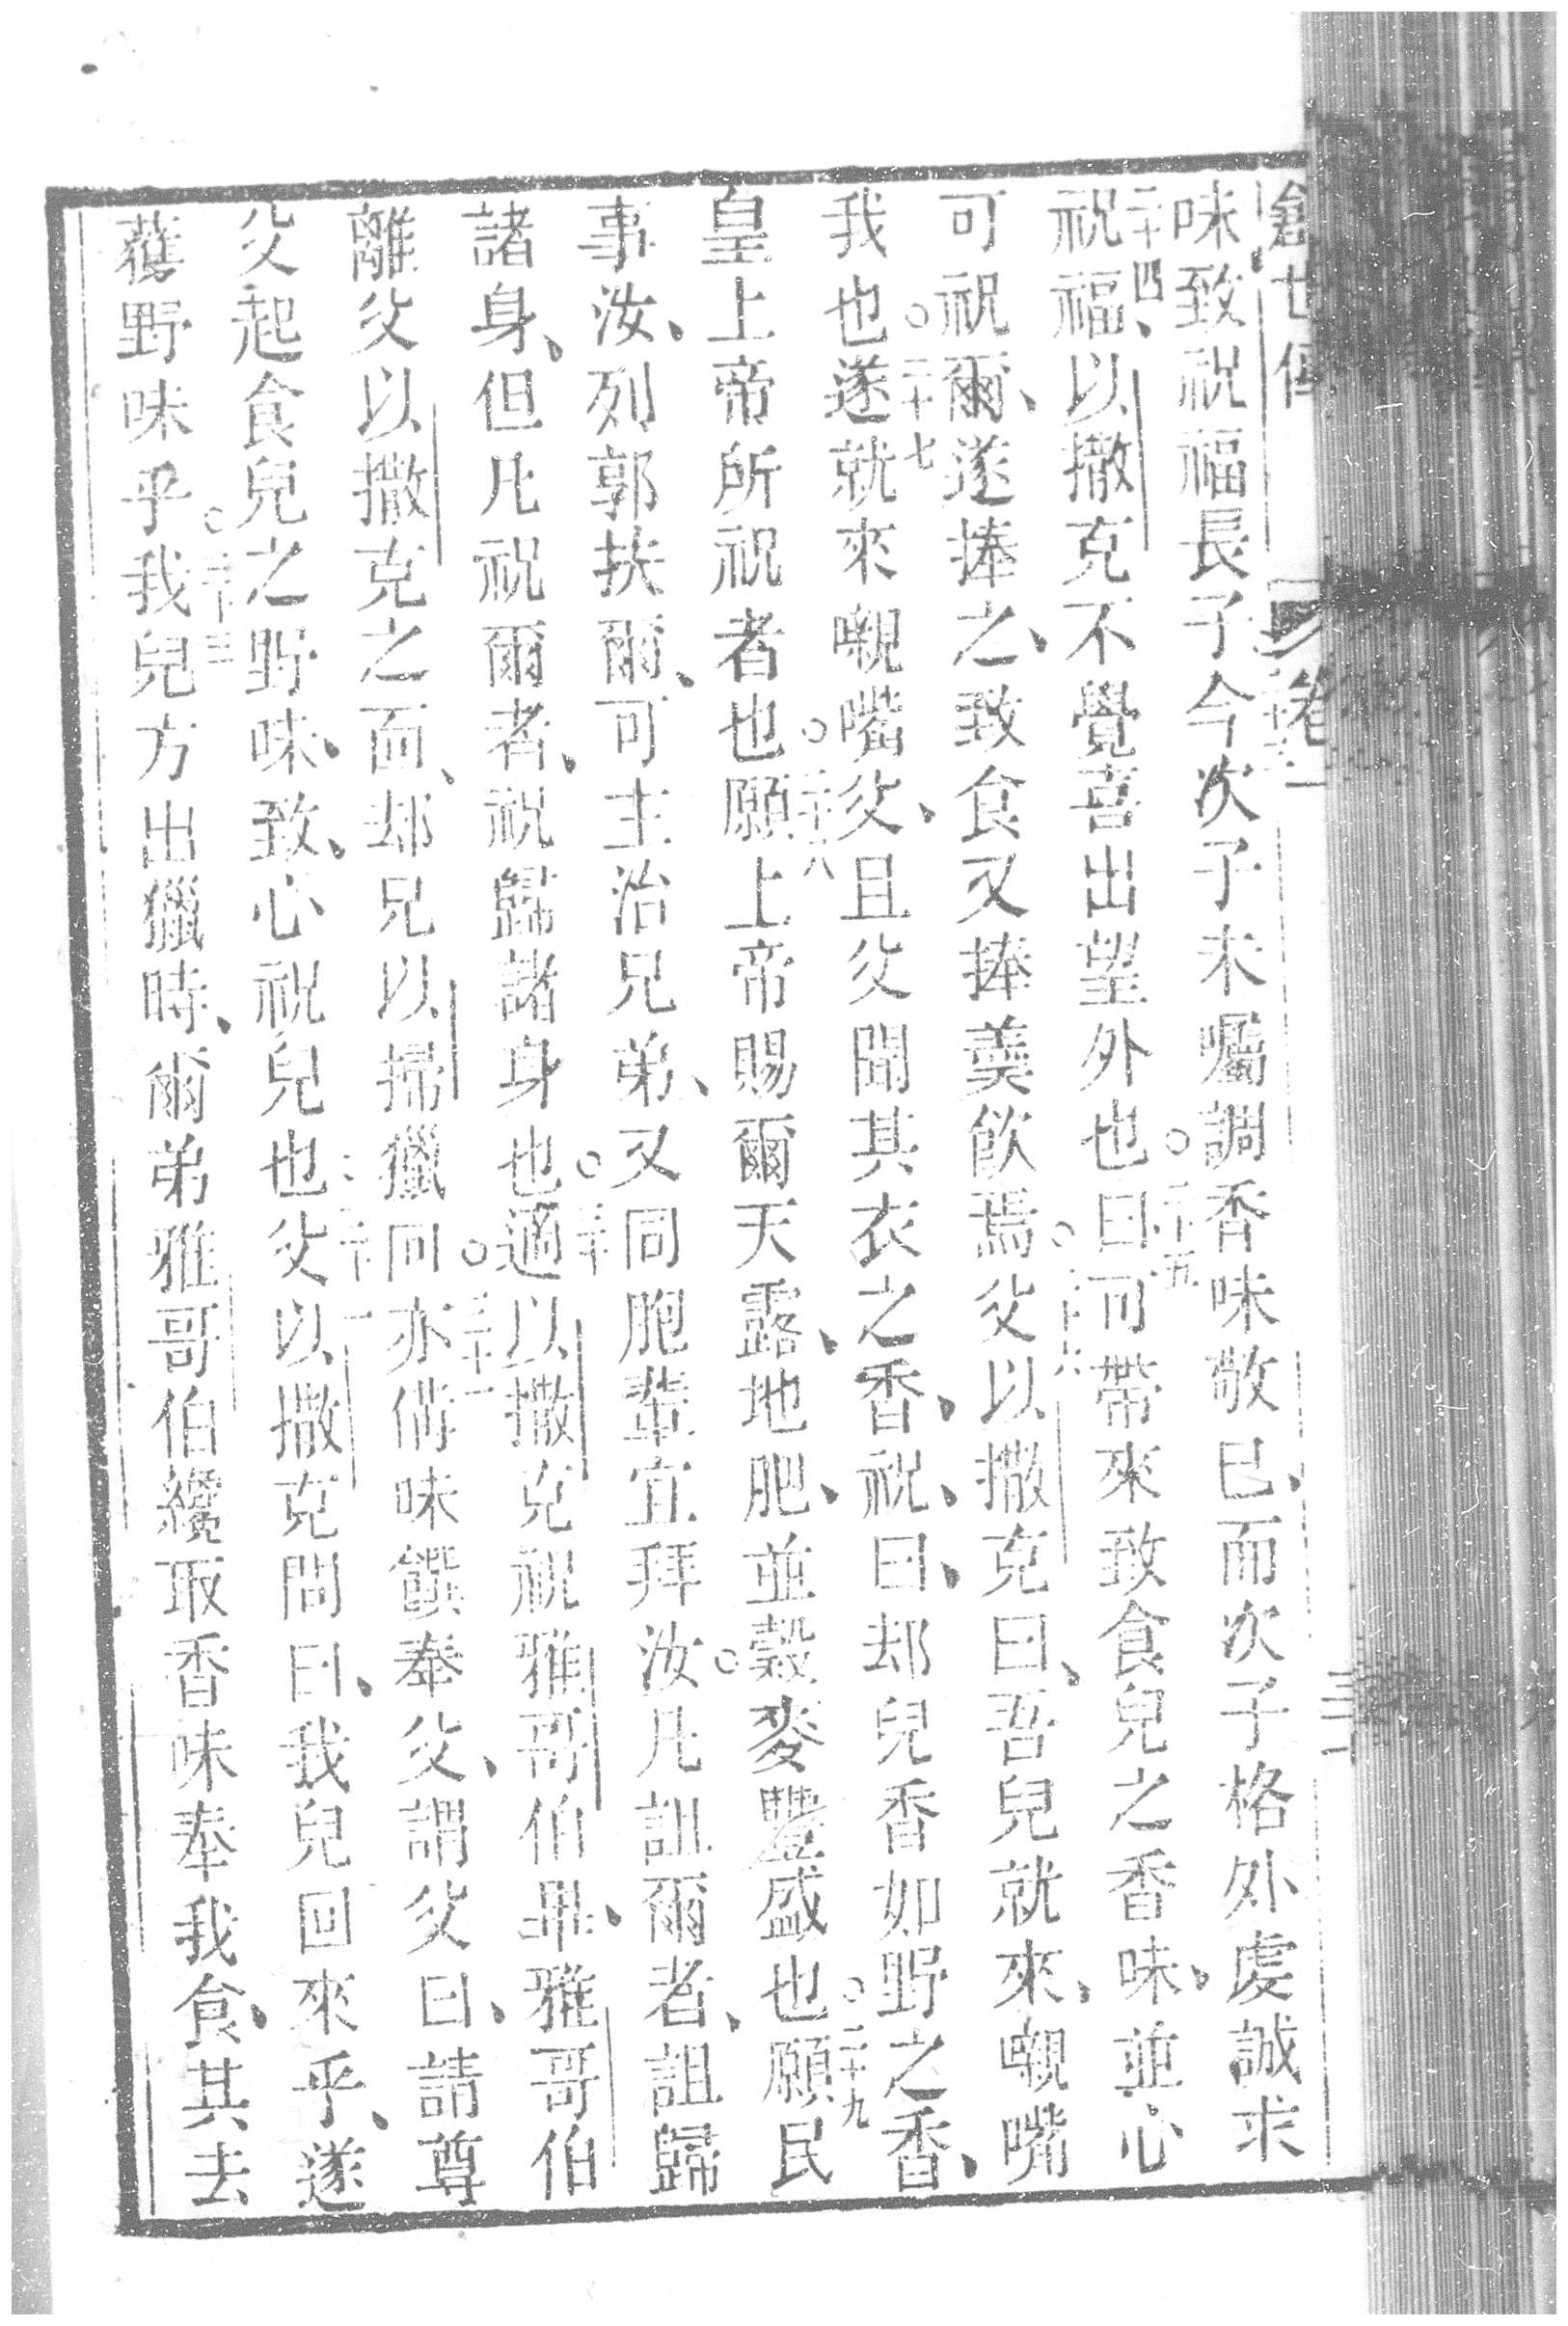 創世傳 卷一 三十
味致祝福長子今次子未囑調香味敬已、而次子格外虔誠求
祝福、二十四以撒克不覺喜出望外也○二十五曰可帶來致食兒之香味、並心
可祝爾、遂捧之、致食又捧羹飲焉○二十六父以撒克曰、吾兒就來、嚫嘴
我也○二十七遂就來嚫嘴父、且父聞其衣之香、祝、曰、却兒香如野之香、
皇上帝所祝者也○二十八願上帝賜爾天露、地肥、並穀麥豐盛也○二十九願民
事汝、列郭扶爾、可主治兄弟、又同胞輩宜拜汝○凡詛爾者、詛歸
諸身、但凡祝爾者、祝歸諸身也○三十適以撒克祝雅哥伯畢、雅哥伯
離父以撒克之面、却兄以掃獵回○三十一亦備味饌奉父、謂父曰、請尊
父起食兒之野味、致、心祝兒也三十二父以撒克問曰、我兒回來乎、遂
獲野味乎○三十三我兒方出獵時、爾弟雅哥伯纔取香味奉我食、其去